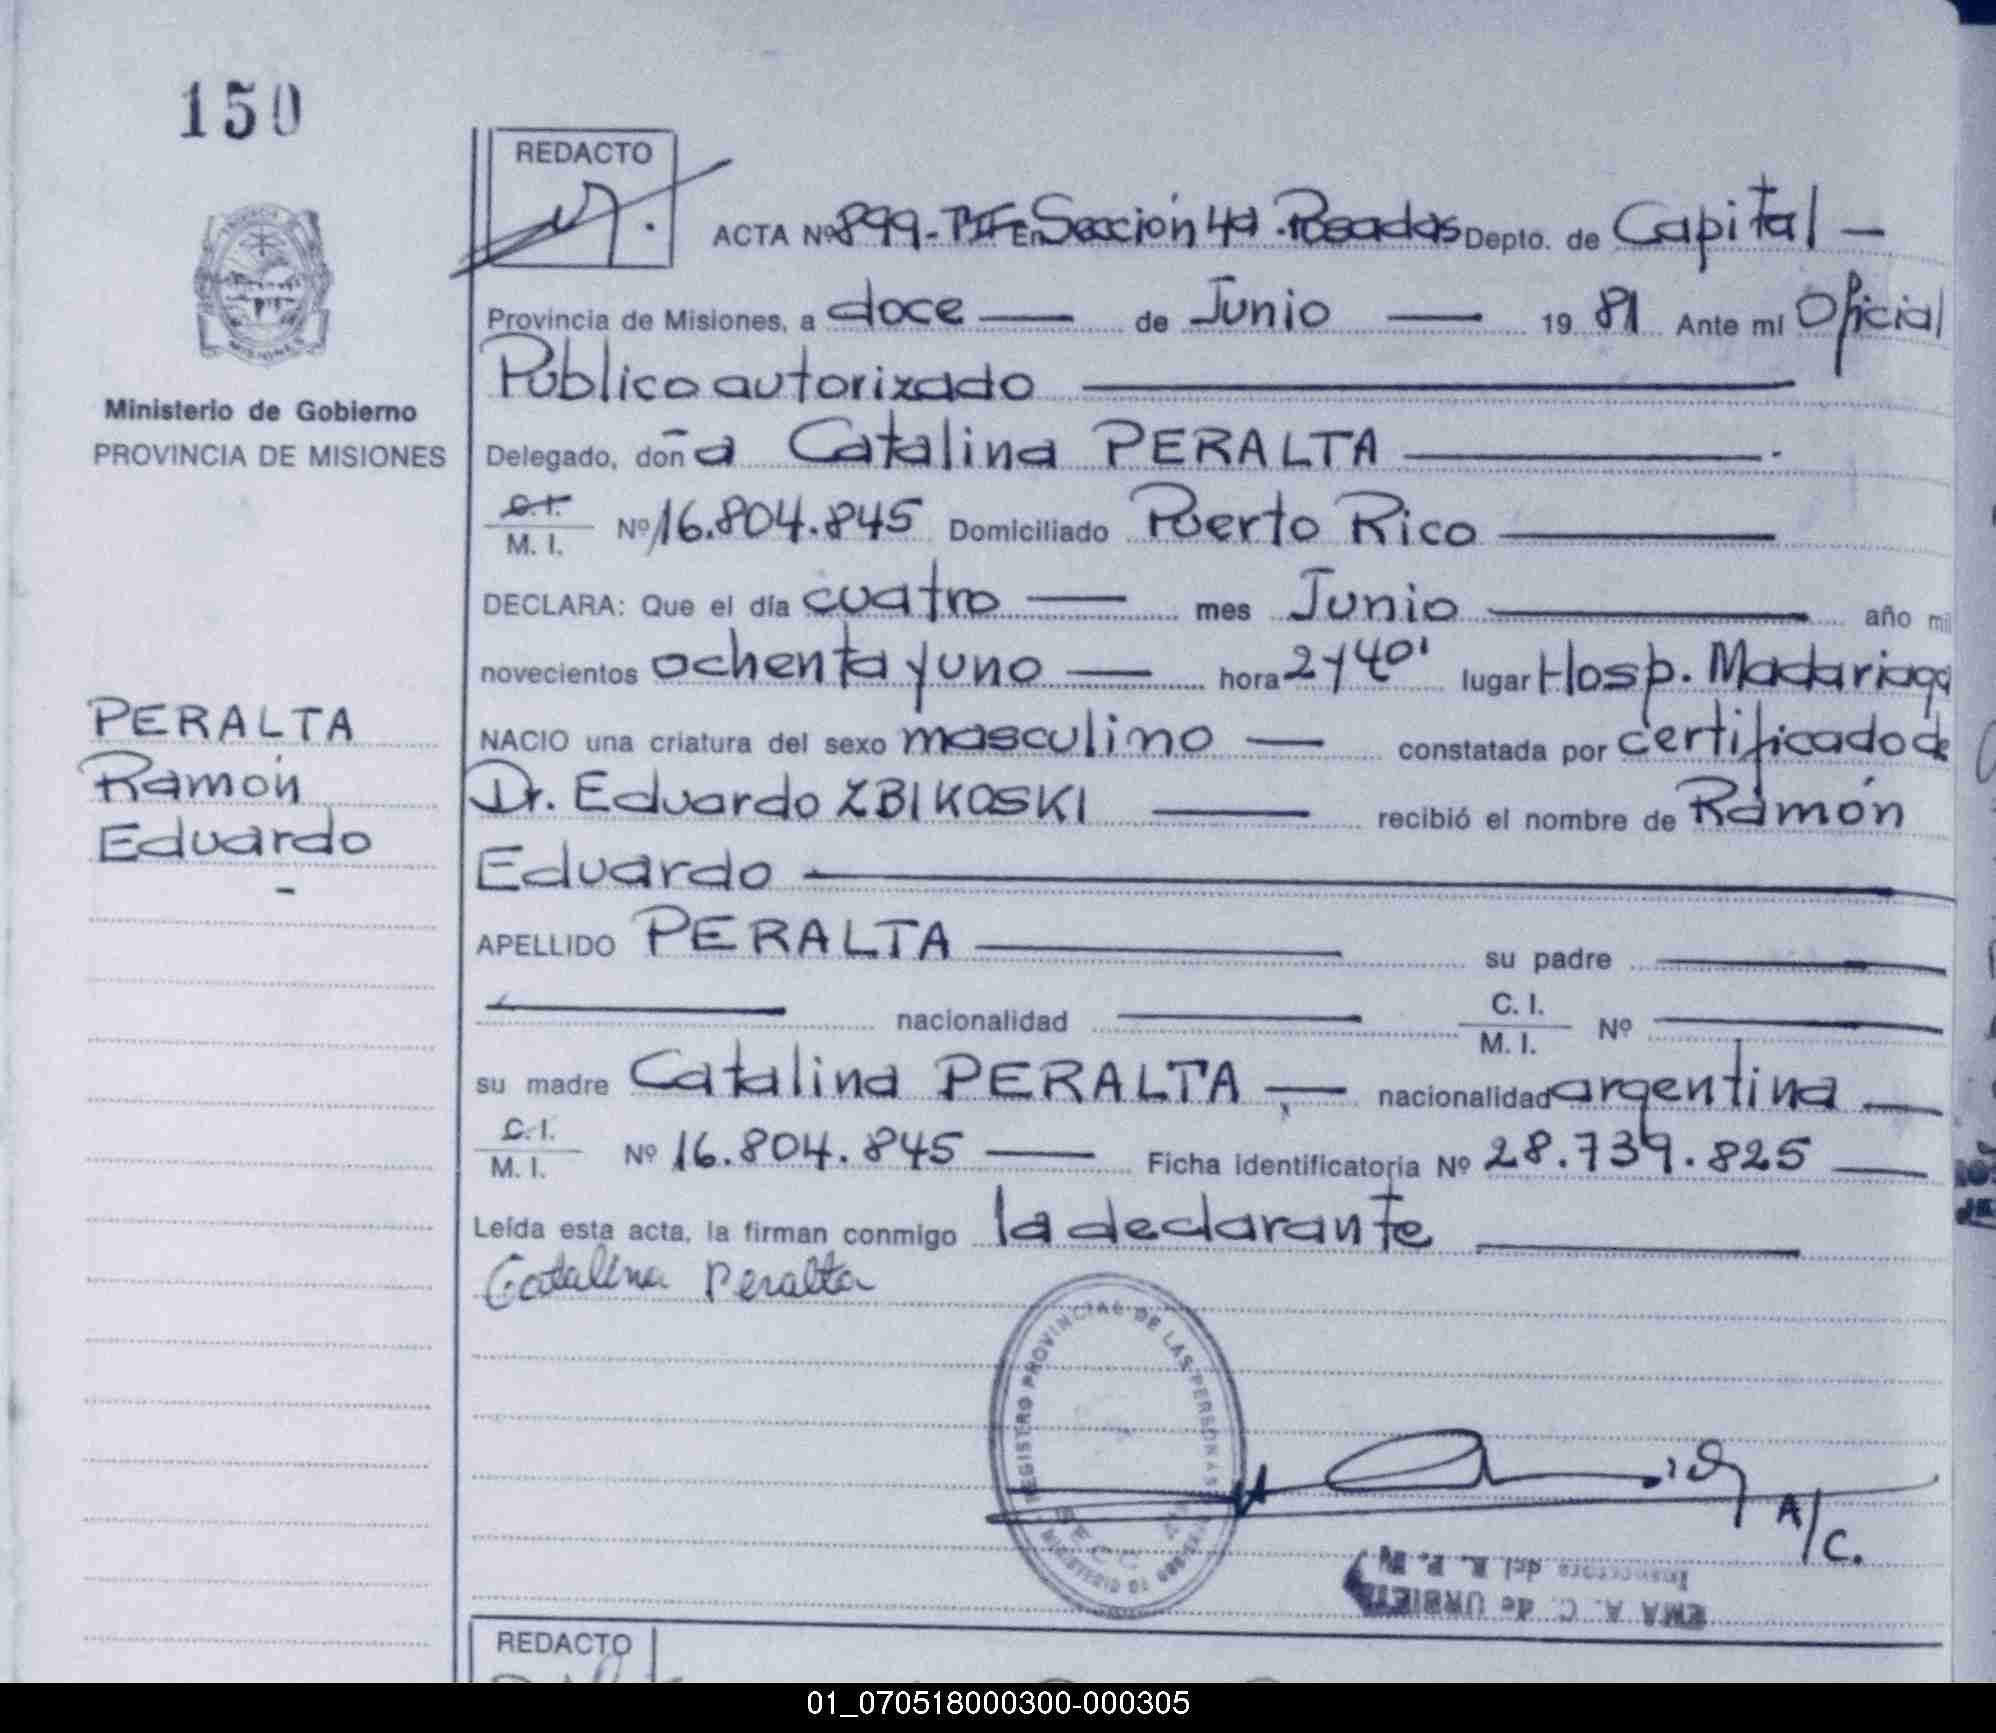 150
REDACTO
ACTA Nº 899-TIF En Sección 4a. Posadas Depto. de Capital —
Provincia de Misiones, a doce — de Junio — 19 81 Ante mi Oficial
Público autorizado
Ministerio de Gobierno
PROVINCIA DE MISIONES
Delegado, doña Catalina PERALTA
C.I. / M. I. Nº 16.804.845 Domiciliado Puerto Rico
DECLARA: Que el día cuatro — mes Junio — año mil
novecientos ochenta y uno — hora 2y40' lugar Hosp. Madariaga
PERALTA
Ramón
Eduardo
NACIO una criatura del sexo masculino — constatada por certificado de
Dr. Eduardo ZBIKOSKI — recibió el nombre de Ramón
Eduardo
APELLIDO PERALTA — su padre
nacionalidad — C. I. / M. I. Nº
su madre Catalina PERALTA — nacionalidad argentina
C.I. / M. I. Nº 16.804.845 — Ficha identificatoria Nº 28.739.825
Leída esta acta, la firman conmigo la declarante
Catalina Peralta
REGISTRO PROVINCIAL DE LAS PERSONAS
A/C.
EMA A. C. de URBIETA
REDACTO
01_070518000300-000305